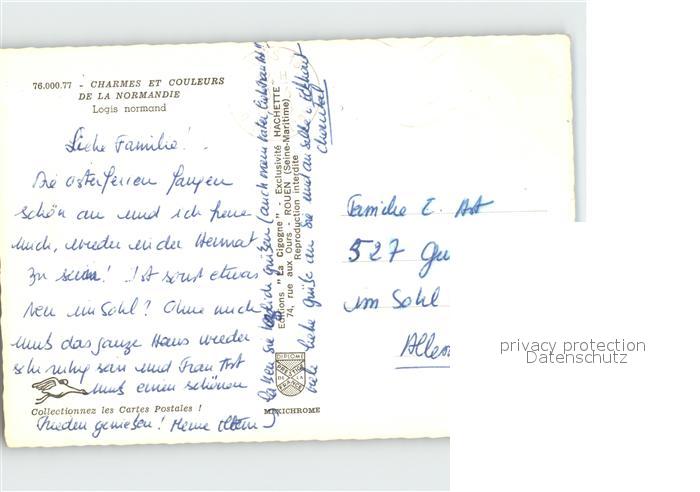 76.000.77 - CHARMES ET COULEURS
DE LA NORMANDIE
Logis normand
Liebe Familie!
Die Osterferien fangen
schön an und ich freue
mich, wieder in der Heimat
zu sein! Ist sonst etwas
Neu im Sohl? Ohne mich
muß das ganze Haus wieder
sehr ruhig sein und Frau Art
muß einen schönen
Collectionnez les Cartes Postales !
Frieden genießen! Meine Eltern
lassen Sie herzlich grüßen (auch mein Vater
Editions "La Cigogne" - Exclusivité HACHETTE
74, rue aux Ours - ROUEN (Seine-Maritime)
Reproduction interdite
viele liebe Grüße an Sie und an
Chantal
DIPLOME
PRESTIGE
DE LA
FRANCE
MEXICHROME
Familie E. Art
527 Gu
im Sohl
Allem
privacy protection
Datenschutz